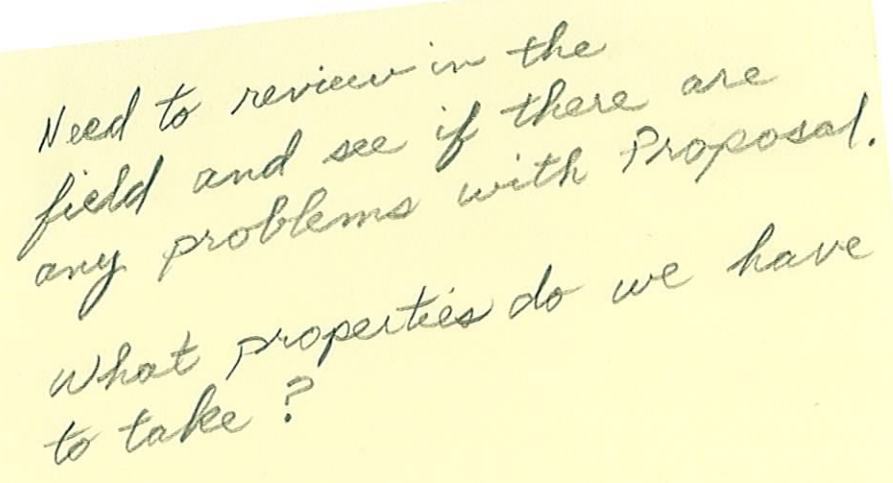 Need to review in the
field and see if there are
any problems with Proposal.
What properties do we have
to take?